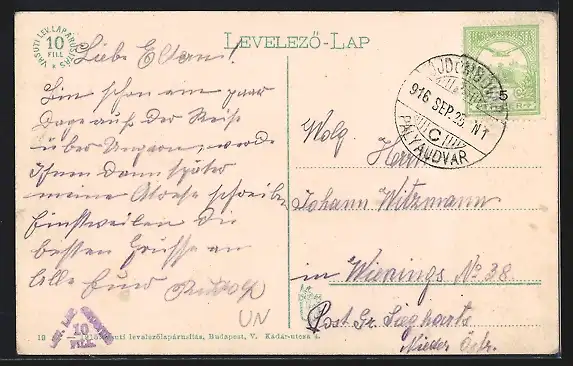 VASUTI LEV. LAPÁRUSÍTÁS
10
FILL
LEVELEZŐ-LAP
Liebe Eltern!
Bin schon ein paar
Tage auf der Reise
über Ungarn, werde
Ihnen dann später
meine Adresse schreiben
Einstweilen die
besten Grüsse an
Alle Euer Rudolf
UN
5
916 SEP. 25. N1
C
PÁLYAUDVAR
Wolg.
Herrn
Johann Witzmann
in Wienings No 38
Post Gr. Siegharts
Nieder Östr.
10
FILL
levelezőlapárusítás, Budapest, V. Kádár-utcza 4.